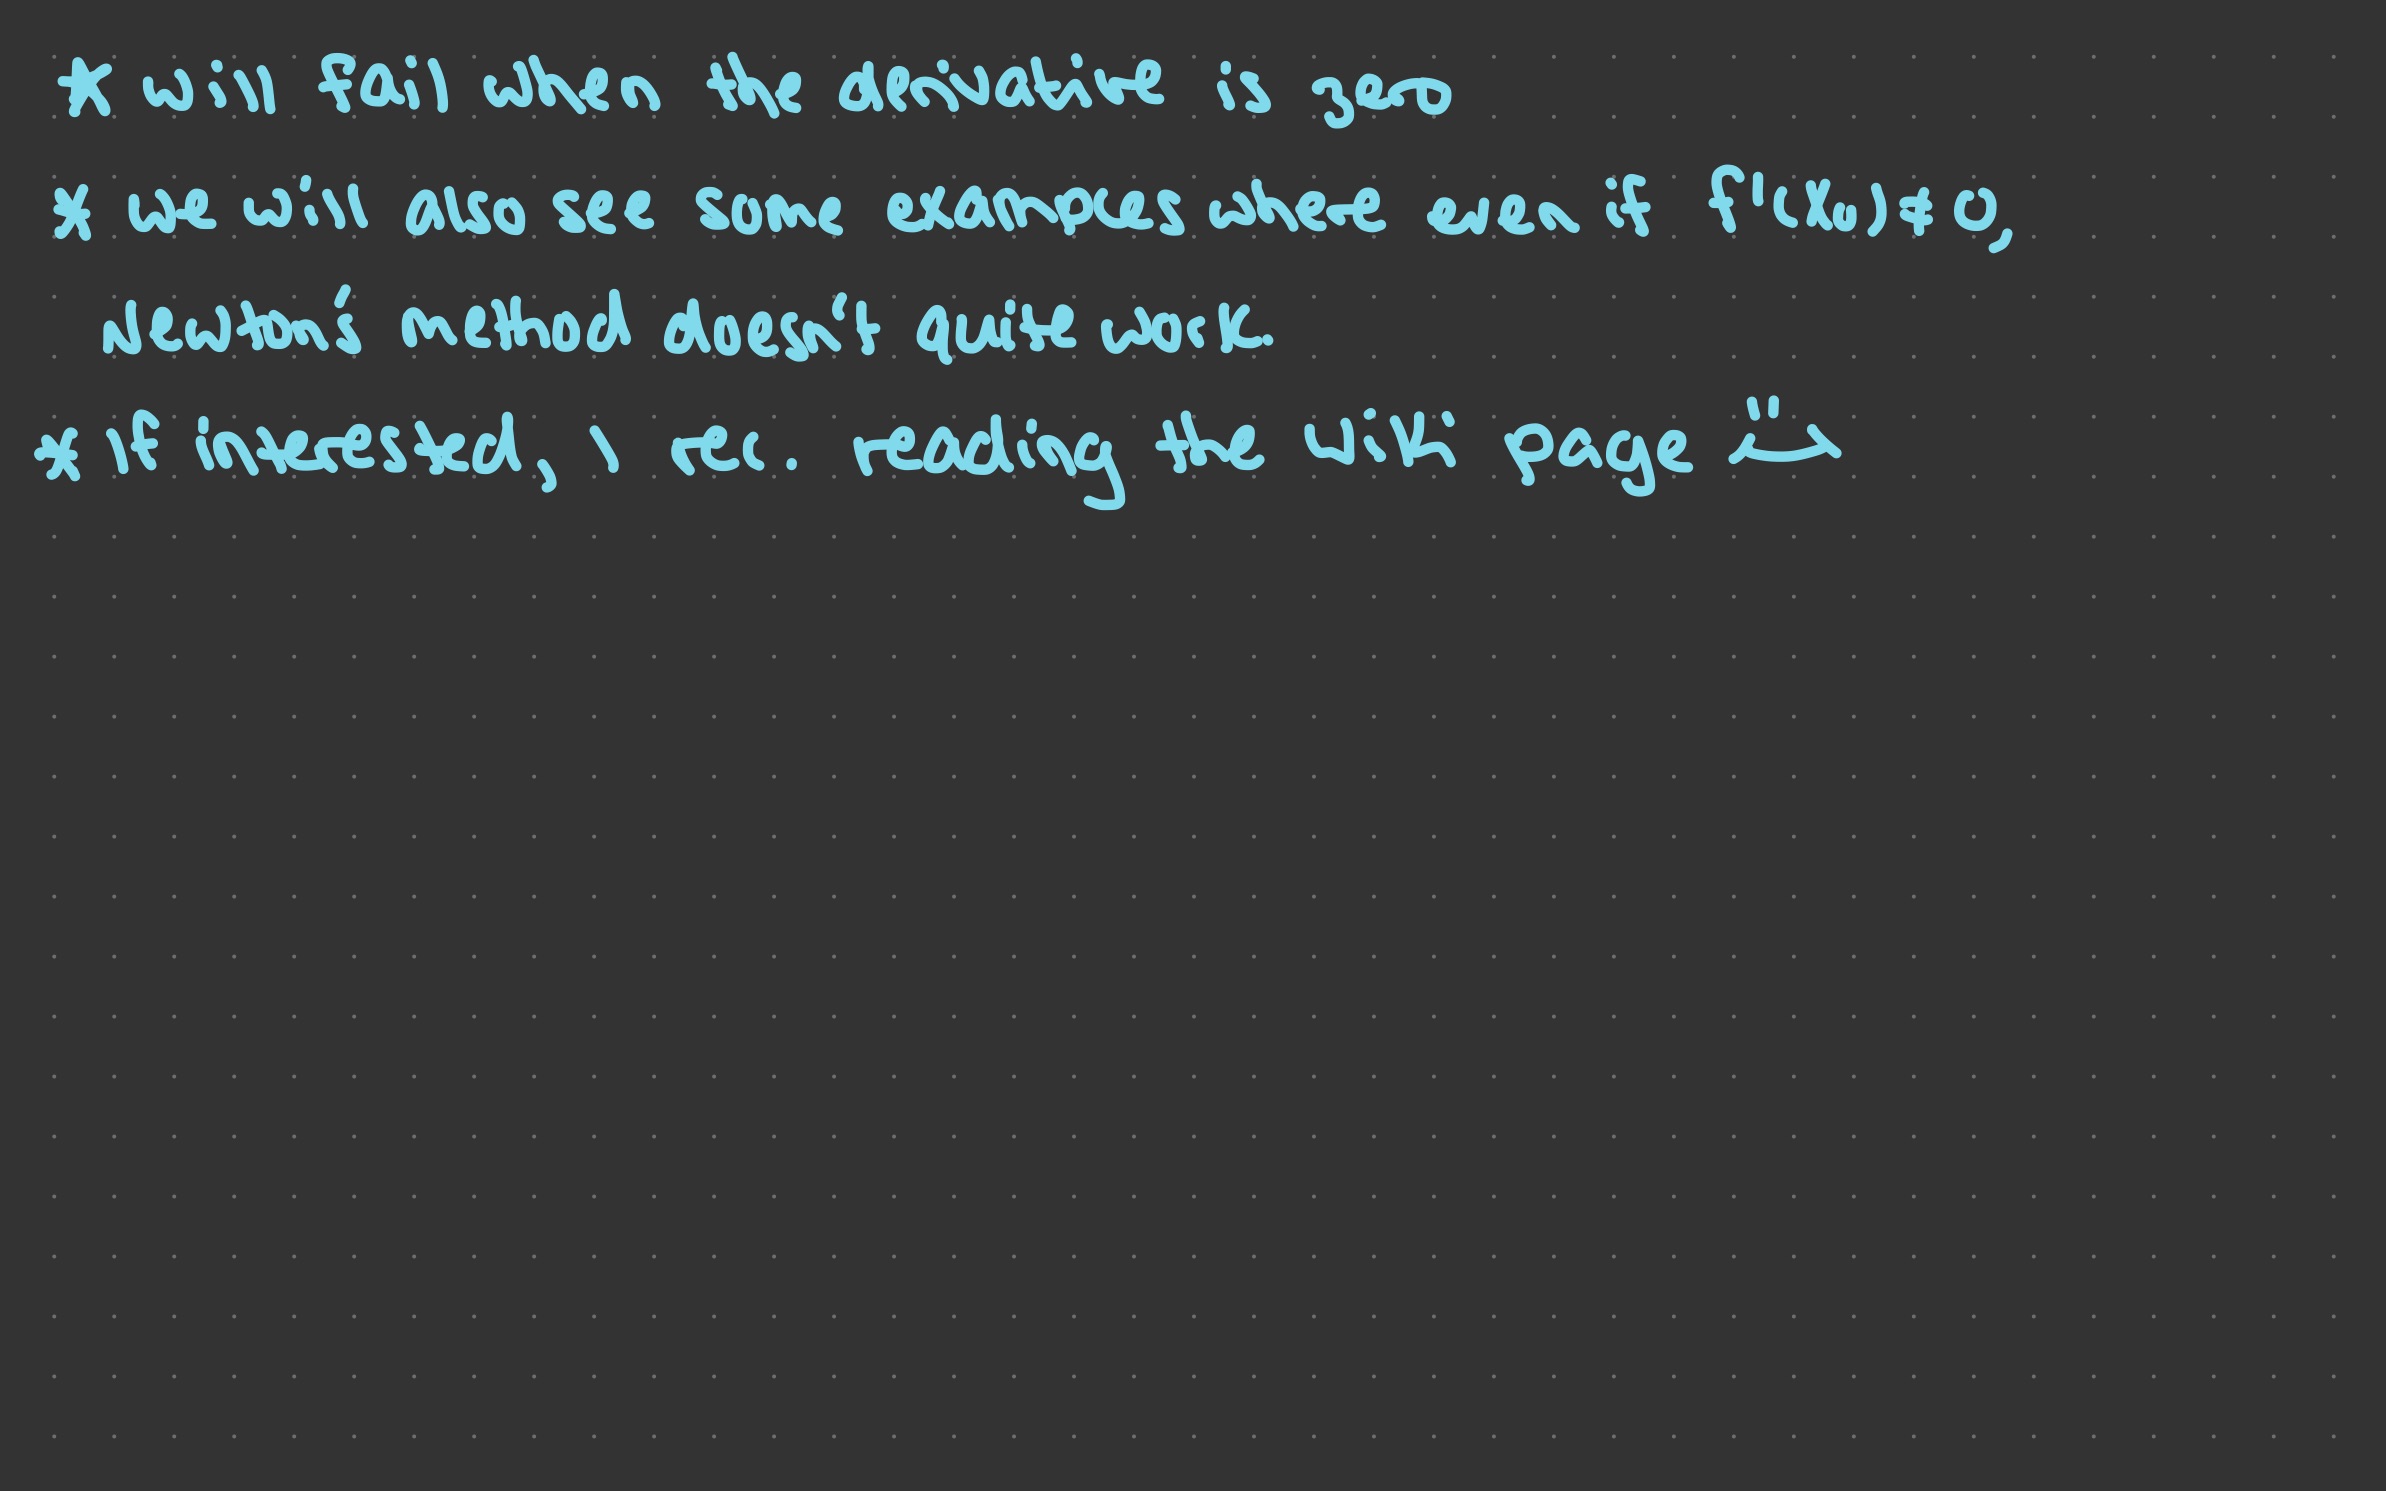 * will fail when the derivative is zero
* we will also see some examples where even if f'(x0) ≠ 0,
Newton's method doesn't quite work.
* If interested, I rec. reading the Wiki page